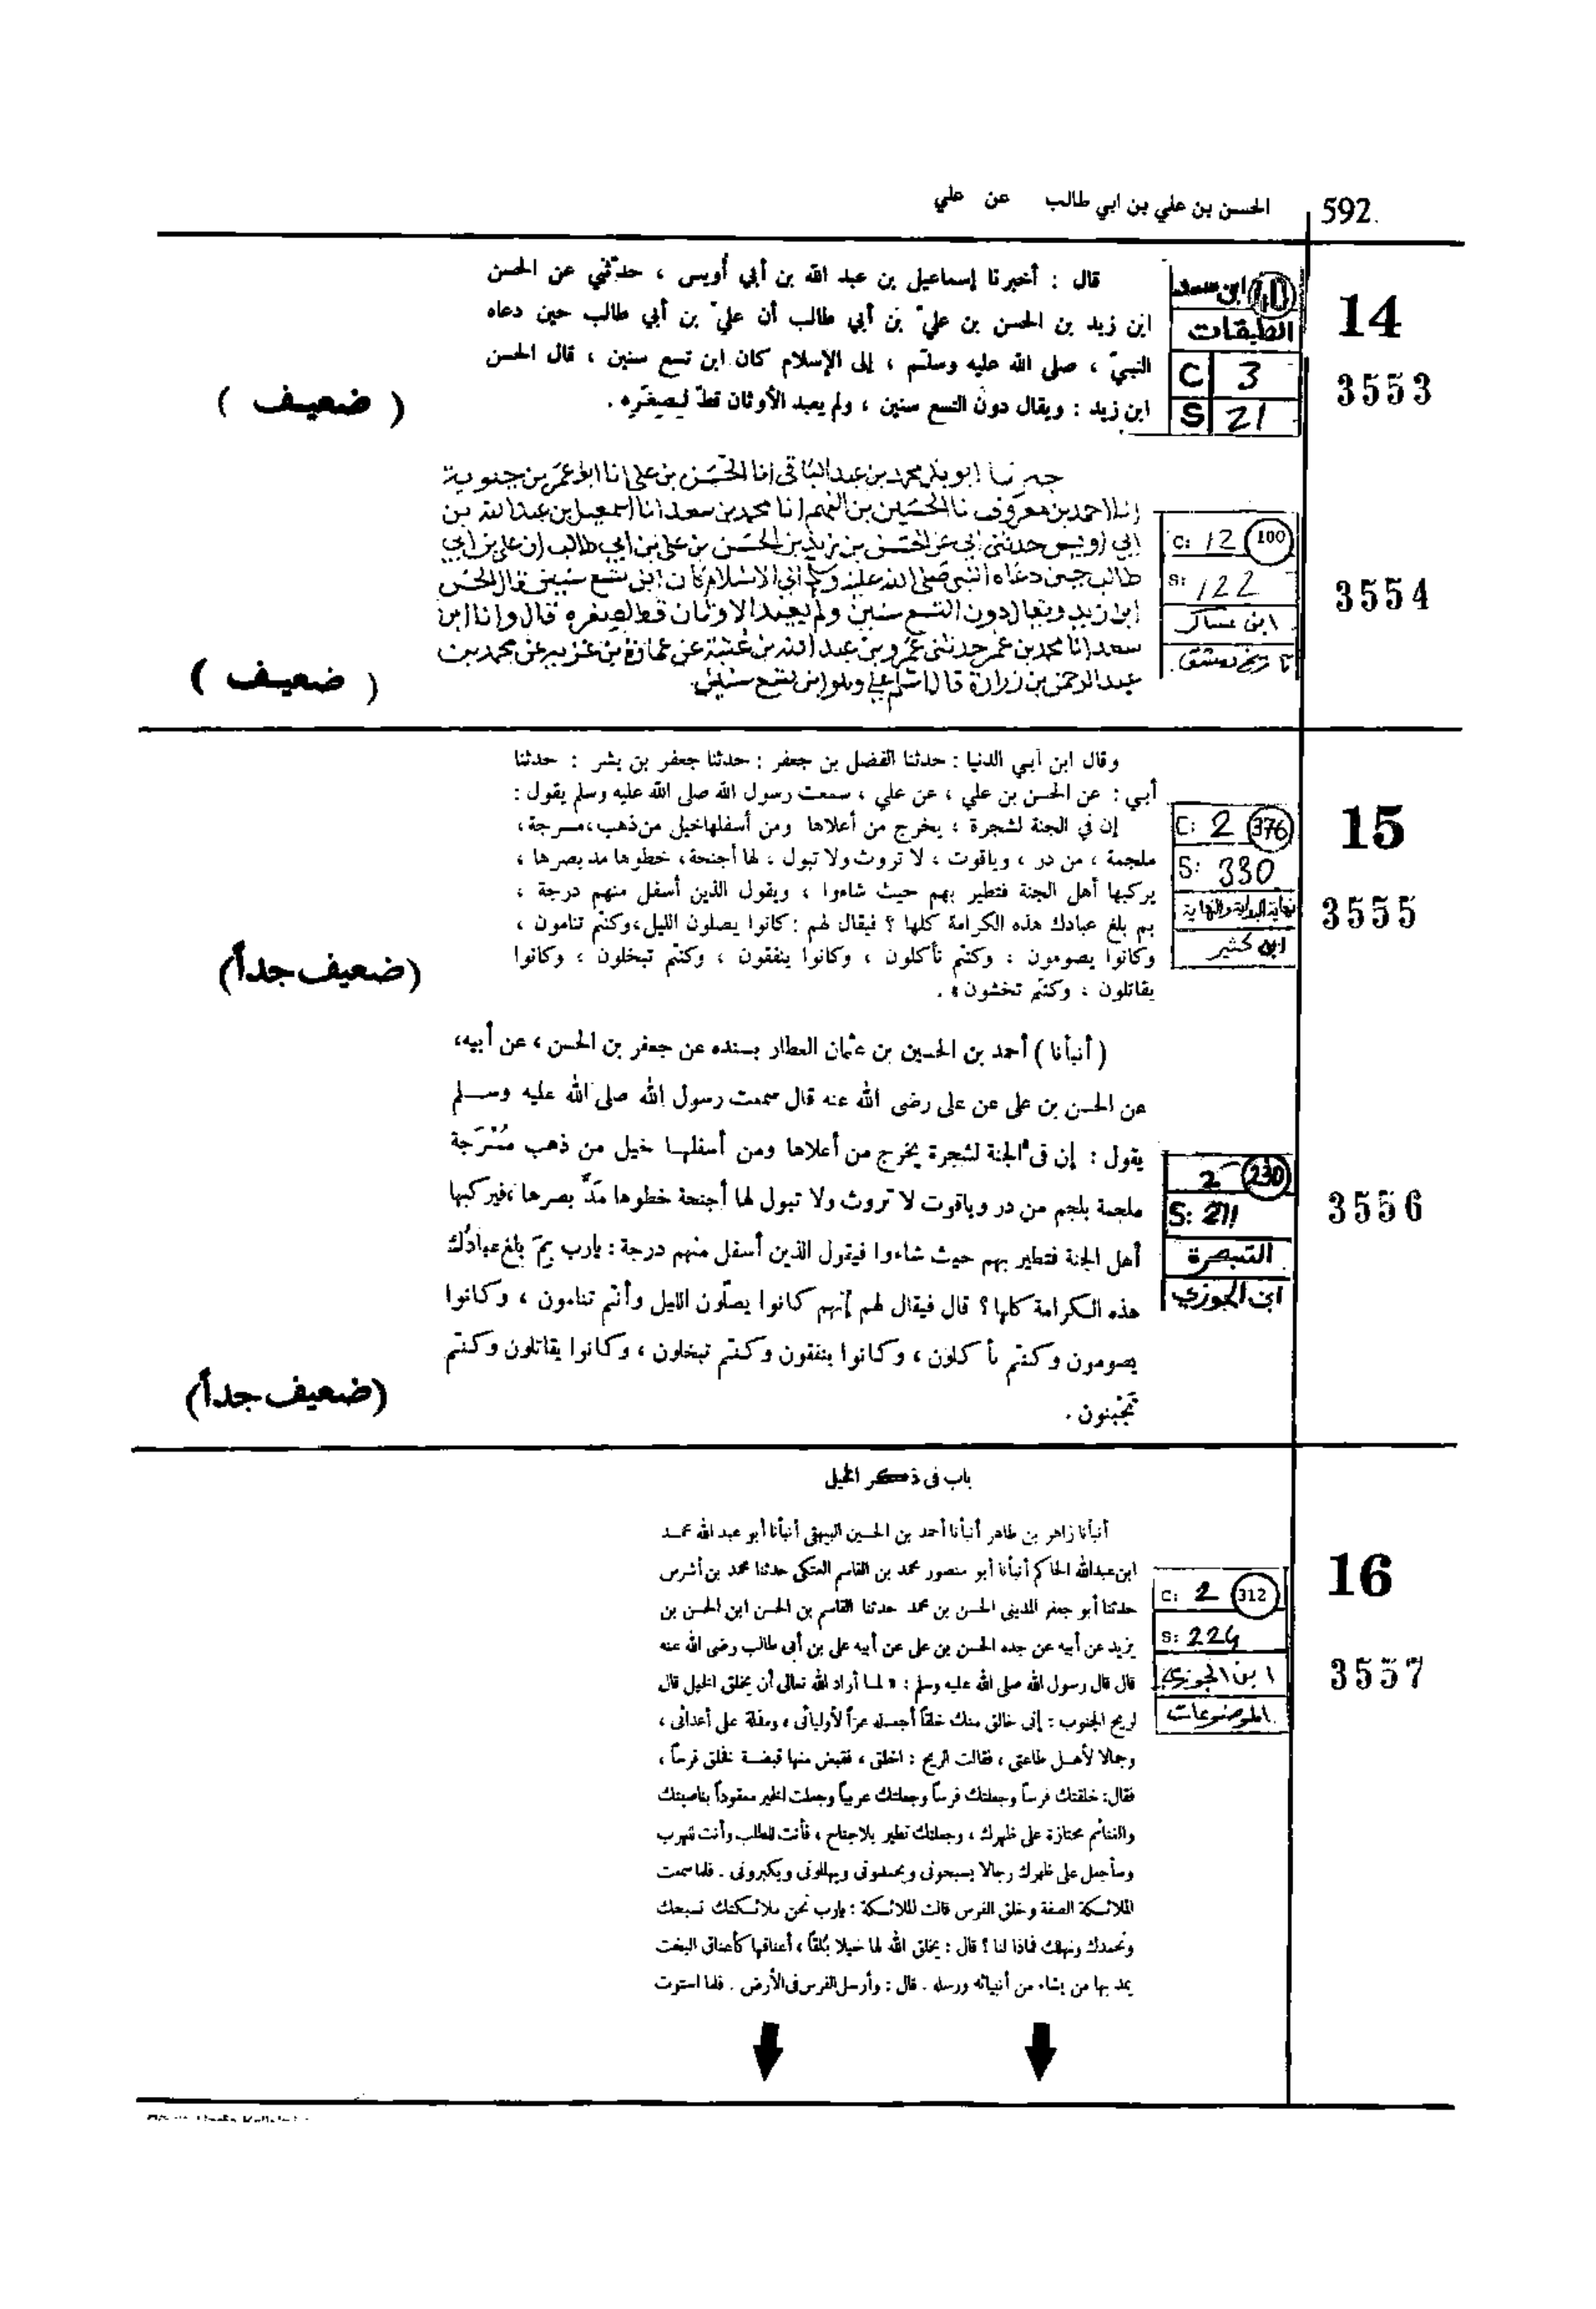 592.
الحسن بن علي بن ابي طالب عن علي
14
3553
ابن سعد
الطبقات
C 3
S 21
قال : أخبرنا إسماعيل بن عبد الله بن أبي أُويس ، حدّثني عن الحسن
ابن زيد بن الحسن بن عليّ بن أبي طالب أن عليّ بن أبي طالب حين دعاه
النبيّ ، صلى الله عليه وسلّم ، إلى الإسلام كان ابن تسع سنين ، قال الحسن
ابن زيد : ويقال دون التسع سنين ، ولم يعبد الأوثان قطّ لصِغَرِه .
( ضعيف )
3554
C: 12 100
S: 122
ابن عساكر
تاريخ دمشق
ابو بكر محمد بن عبد الباقي انا الحسن بن علي انا ابو عمر بن حيوية
انا احمد بن معروف نا الحسين بن الفهم انا محمد بن سعد انا اسمعيل بن عبد الله بن
ابي اويس حدثني ابي عن الحسن بن زيد بن الحسن بن علي بن ابي طالب ان علي بن ابي
طالب حين دعاه النبي صلى الله عليه وسلم الى الاسلام كان ابن تسع سنين قال الحسن
ابن زيد ويقال دون التسع سنين ولم يعبد الاوثان قط لصغره قال وانا ابن
سعد انا محمد بن عمر حدثني عمرو بن عبد الله بن عتبة عن عمارة بن غزية عن محمد بن
عبد الرحمن بن زرارة قال اسلم علي وهو ابن تسع سنين
( ضعيف )
15
3555
C: 2 376
S: 330
نهاية البداية والنهاية
ابن كثير
وقال ابن أبي الدنيا : حدثنا الفضل بن جعفر : حدثنا جعفر بن بشر : حدثنا
أبي : عن الحسن بن علي ، عن علي ، سمعت رسول الله صلى الله عليه وسلم يقول :
إن في الجنة لشجرة ، يخرج من أعلاها ومن أسفلها خيل من ذهب ، مسرجة ،
ملجمة ، من در ، وياقوت ، لا تروث ولا تبول ، لها أجنحة ، خطوها مد بصرها ،
يركبها أهل الجنة فتطير بهم حيث شاءوا ، ويقول الذين أسفل منهم درجة ،
بم بلغ عبادك هذه الكرامة كلها ؟ فيقال لهم : كانوا يصلون الليل ، وكنتم تنامون ،
وكانوا يصومون ، وكنتم تأكلون ، وكانوا ينفقون ، وكنتم تبخلون ، وكانوا
يقاتلون ، وكنتم تخشون» .
(ضعيف جداً)
3556
2 230
S: 211
التبصرة
ابن الجوزي
( أنبأنا ) أحمد بن الحسين بن عثمان العطار بسنده عن جعفر بن الحسن ، عن أبيه،
عن الحسن بن على عن على رضى الله عنه قال سمعت رسول الله صلى الله عليه وسلم
يقول : إن فى الجنة لشجرة يخرج من أعلاها ومن أسفلها خيل من ذهب مُسْرَجة
ملجمة بلجم من در وياقوت لا تروث ولا تبول لها أجنحة خطوها مَدّ بصرها ،فيركبها
أهل الجنة فتطير بهم حيث شاءوا فيقول الذين أسفل منهم درجة : يارب بِمَ بلغ عبادُك
هذه الكرامة كلها ؟ قال فيقال لهم إنهم كانوا يصلّون الليل وأنتم تنامون ، وكانوا
يصومون وكنتم تأكلون ، وكانوا ينفقون وكنتم تبخلون ، وكانوا يقاتلون وكنتم
تَجْبنون .
(ضعيف جداً)
باب فى ذكر الخيل
16
3557
C: 2 312
S: 224
ابن الجوزي
الموضوعات
أنبأنا زاهر بن طاهر أنبأنا أحمد بن الحسين البيهقى أنبأنا أبو عبد الله محمد
ابن عبدالله الحاكم أنبأنا أبو منصور محمد بن القاسم العتكى حدثنا محمد بن أشرس
حدثنا أبو جعفر المدينى الحسن بن محمد حدثنا القاسم بن الحسن ابن الحسن بن
يزيد عن أبيه عن جده الحسن بن على عن أبيه على بن أبى طالب رضى الله عنه
قال قال رسول الله صلى الله عليه وسلم : « لما أراد الله تعالى أن يخلق الخيل قال
لريح الجنوب : إنى خالق منك خلقاً أجعله عزاً لأوليائى ، ومذلة على أعدائى ،
وجمالا لأهل طاعتى ، فقالت الريح : اخلق ، فقبض منها قبضة فخلق فرساً ،
فقال : خلقتك فرساً وجعلتك فرساً وجعلتك عربياً وجعلت الخير معقوداً بناصيتك
والغنائم محتازة على ظهرك ، وجعلتك تطير بلا جناح ، فأنت للطلب وأنت للهرب
وسأجعل على ظهرك رجالا يسبحونى ويحمدونى ويهللونى ويكبرونى . فلما سمعت
الملائكة الصفة وخلق الفرس قالت الملائكة : يارب نحن ملائكتك نسبحك
ونحمدك ونهلك فماذا لنا ؟ قال : يخلق الله لها خيلا بُلقاً ، أعناقها كأعناق البخت
يمد بها من يشاء من أنبيائه ورسله . قال : وأرسل الفرس فى الأرض . فلما استوت